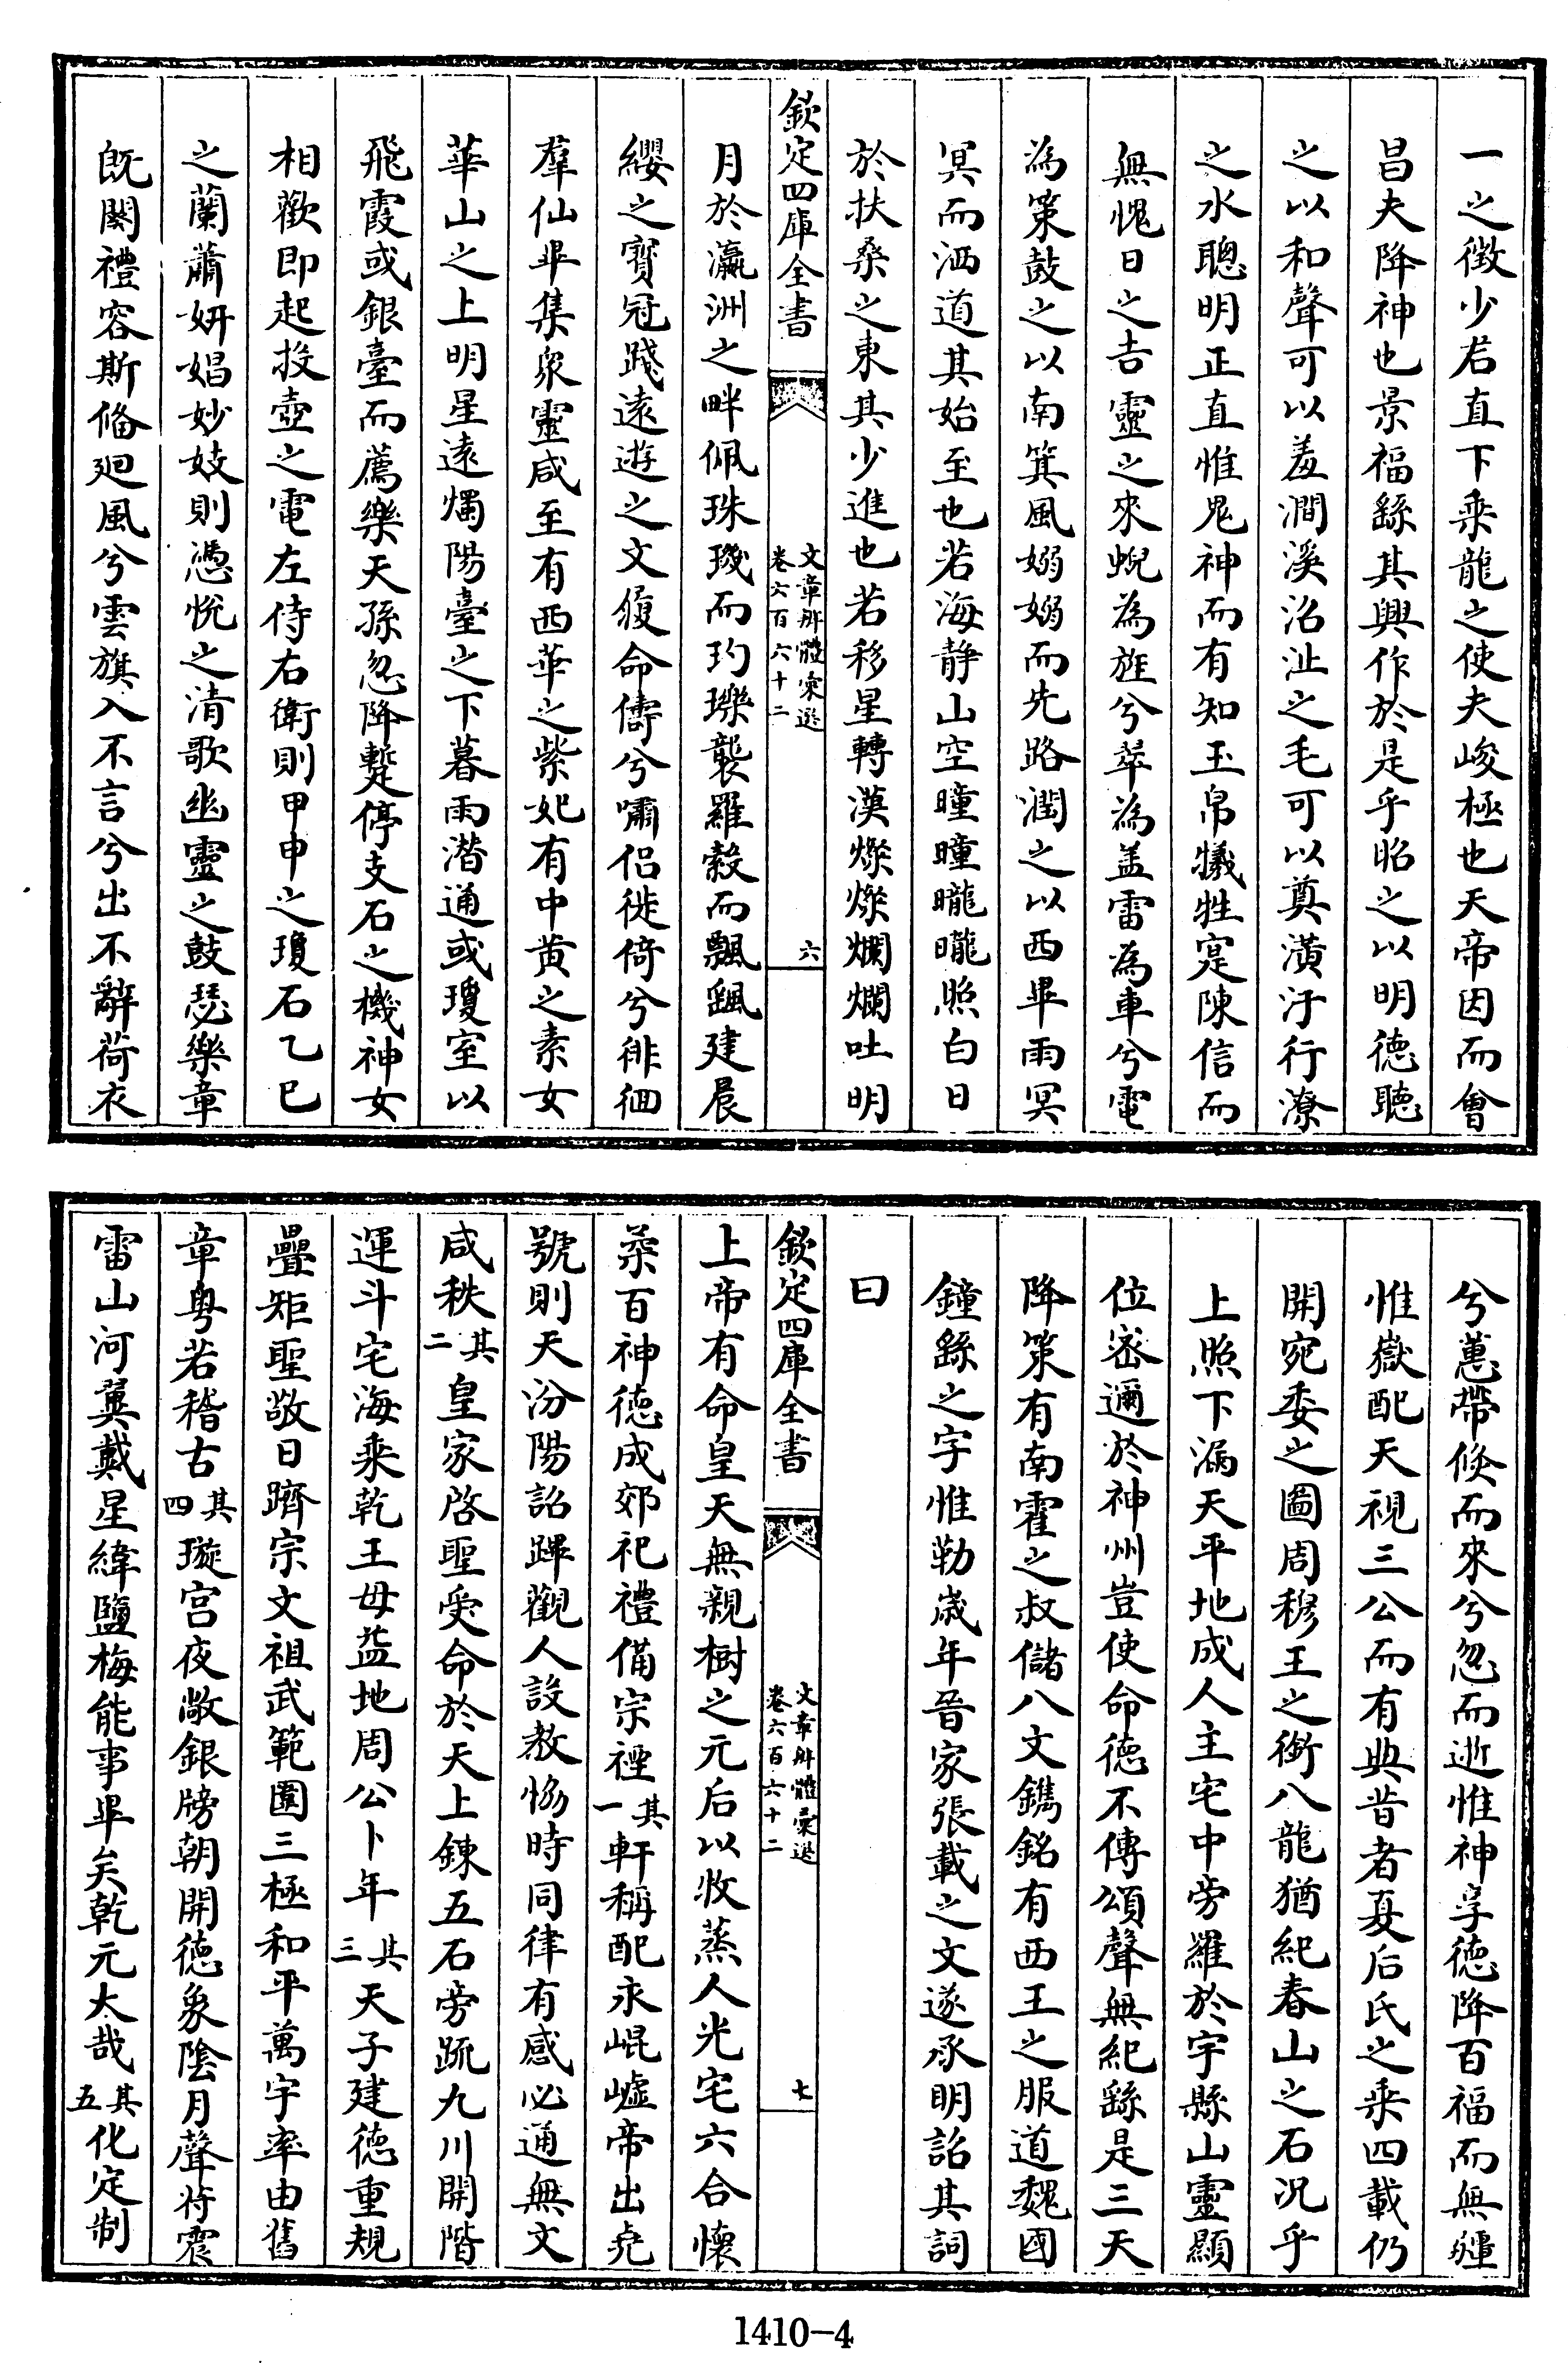 一之徴少君直下乘龍之使夫峻極也天帝因而會
昌夫降神也景福繇其興作於是乎昭之以明德聽
之以和聲可以羞澗溪沼沚之毛可以奠潢汙行潦
之水聰明正直惟鬼神而有知玉帛犧牲寔陳信而
無愧日之吉靈之來蜺為旌兮翠為盖雷為車兮電
為策鼓之以南箕風嫋嫋而先路潤之以西畢雨冥
冥而洒道其始至也若海静山空曈曈曨曨照白日
於扶桑之東其少進也若移星轉漢爍爍爛爛吐明
欽定四庫全書
文章辨體彙選
卷六百六十二
六
月於瀛洲之畔佩珠璣而玓瓅襲羅縠而飄颻建晨
纓之寳冠踐遠遊之文履命儔兮嘯侣徙倚兮徘徊
羣仙畢集衆靈咸至有西華之紫妃有中黄之素女
華山之上明星遠燭陽臺之下暮雨潜通或瓊室以
飛霞或銀臺而薦樂天孫忽降蹔停支石之機神女
相歡即起投壺之電左侍右衛則甲申之瓊石乙巳
之蘭蕭妍娼妙妓則憑悦之清歌幽靈之鼓瑟樂章
既闋禮容斯偹廻風兮雲旗入不言兮出不辭荷衣
兮蕙帶倐而來兮忽而逝惟神孚德降百福而無疆
惟嶽配天視三公而有典昔者夏后氏之乘四載仍
開宛委之圖周穆王之銜八龍猶紀春山之石况乎
上照下漏天平地成人主宅中旁羅於宇縣山靈顯
位宻邇於神州豈使命德不傳頌聲無紀繇是三天
降策有南霍之叔儲八文鐫銘有西王之服道魏國
鐘繇之字惟勒嵗年晉家張載之文遂承明詔其詞
曰
欽定四庫全書
文章辨體彙選
卷六百六十二
七
上帝有命皇天無親樹之元后以收蒸人光宅六合懷
柔百神德成郊祀禮備宗禋其一軒稱配永崐嵫帝出堯
號則天汾陽詔蹕觀人設教恊時同律有感必通無文
咸秩其二皇家啓聖受命於天上鍊五石旁疏九川開階
運斗宅海乘乾王母益地周公卜年其三天子建德重規
疊矩聖敬日躋宗文祖武範圍三極和平萬宇率由舊
章粤若稽古其四璇宫夜敞銀牓朝開德象陰月聲将震
雷山河冀戴星緯鹽梅能事畢矣乾元大哉其五化定制
1410-4